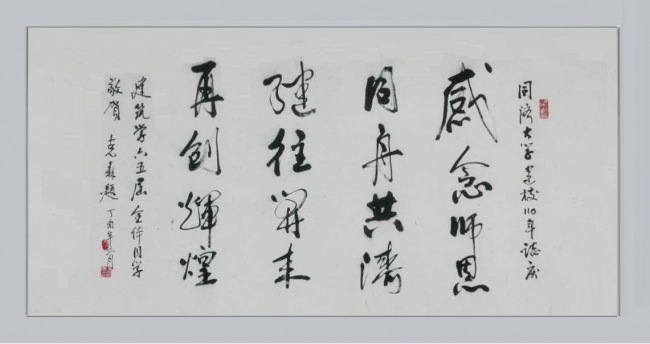 同济大学建校110年誌庆
感念师恩
同舟共濟
继往开来
再创辉煌
建筑学六五届全体同学
敬贺 克森题 丁酉年三月